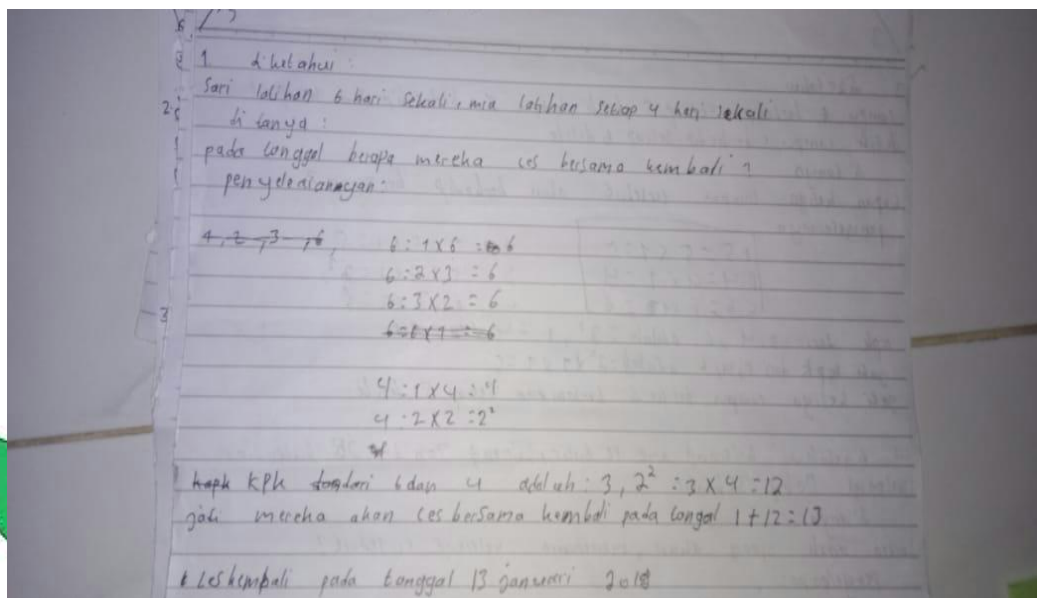 1 diketahui :
Sari latihan 6 hari sekali, mia latihan setiap 4 hari sekali
di tanya :
pada tonggal berapa mereka les bersama kembali ?
penyelesiannyan :
1, 2, 3, 6, 6 : 1 x 6 = 6
6 : 2 x 3 = 6
6 : 3 x 2 = 6
6 = 6 x 1 = 6
4 : 1 x 4 = 4
4 : 2 x 2 = 2²
KPK dari 6 dan 4 adalah : 3, 2² = 3 x 4 = 12
jadi mereka akan les bersama kembali pada tonggal 1 + 12 = 13
Les kembali pada tanggal 13 januari 2018